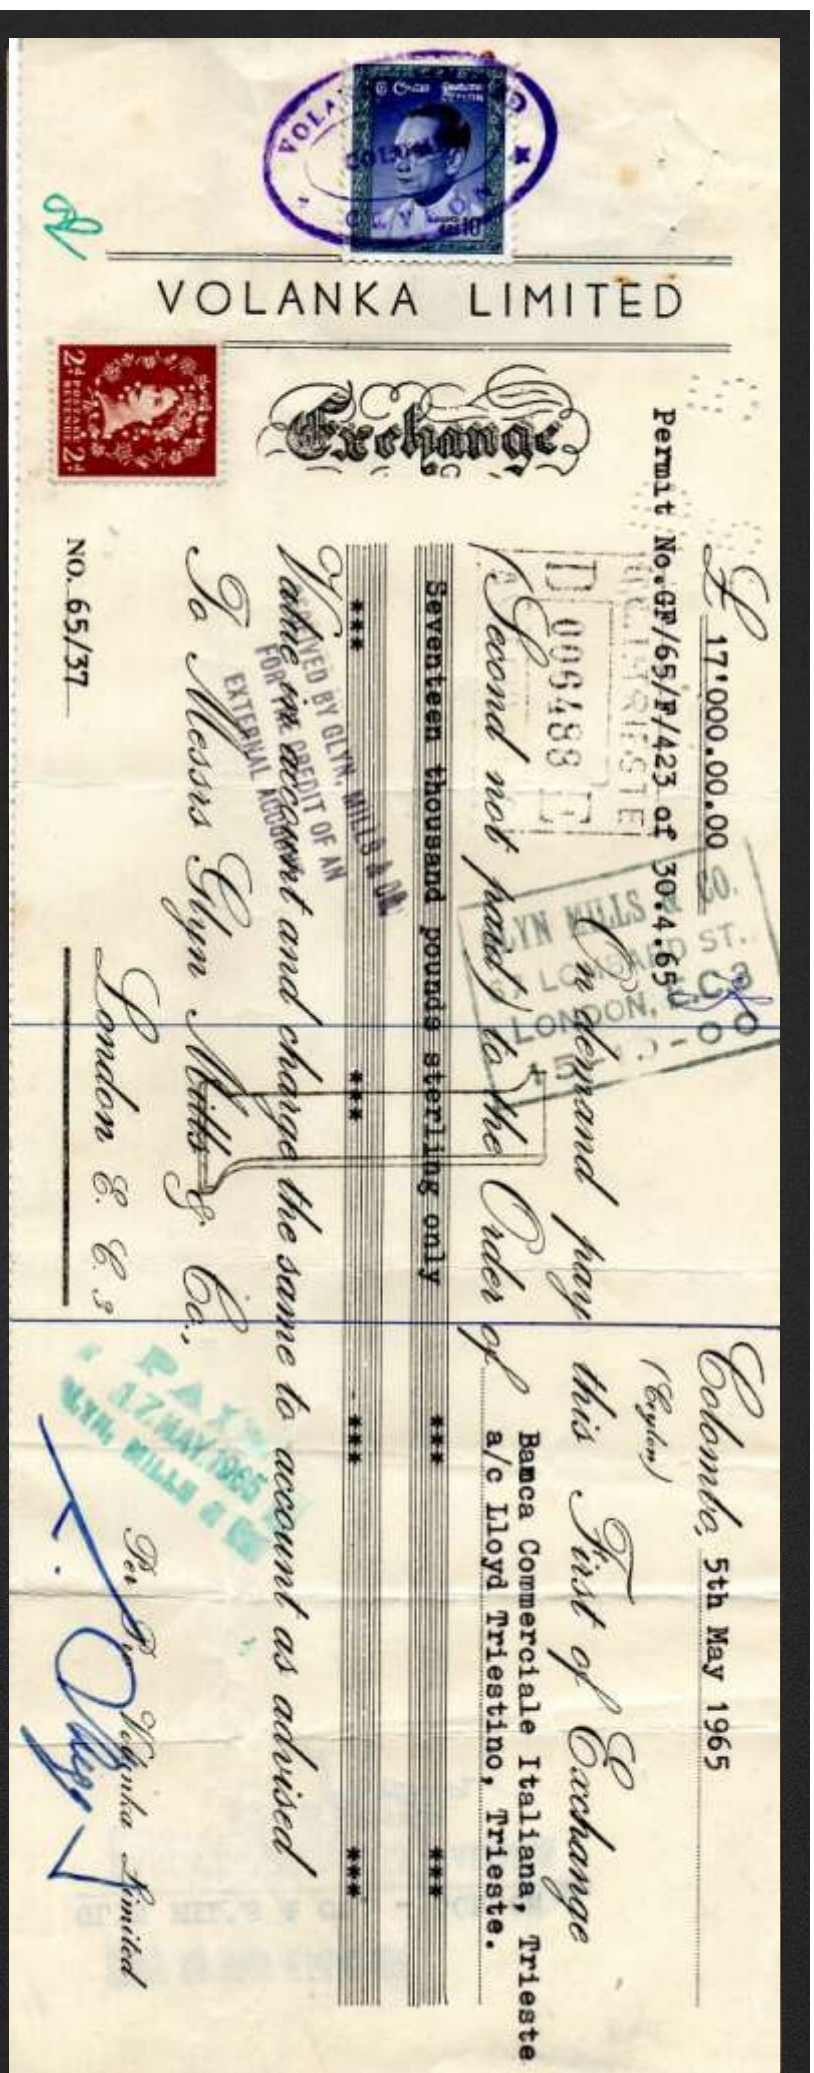 VOLANKA LIMITED
Exchange
£ 17'000.00.00
Colombo, 5th May 1965
(Ceylon)
Permit No.GF/65/F/423 of 30.4.65
On demand pay this First of Exchange
(Second not paid) to the Order of Banca Commerciale Italiana, Trieste
a/c Lloyd Triestino, Trieste.
Seventeen thousand pounds sterling only *** ***
*** *** *** ***
Value in account and charge the same to account as advised
To Messrs Glyn Mills & Co.,
London E. C. 3
NO. 65/37
Per Pro Volanka Limited
CEYLON
10
CEYLON
2d POSTAGE REVENUE 2d
D 006488 E
GLYN MILLS & CO.
67 LOMBARD ST.
LONDON, E.C.3
BY GLYN, MILLS & CO.
FOR THE CREDIT OF AN
EXTERNAL ACCOUNT
PAID
17 MAY 1965
GLYN, MILLS & CO